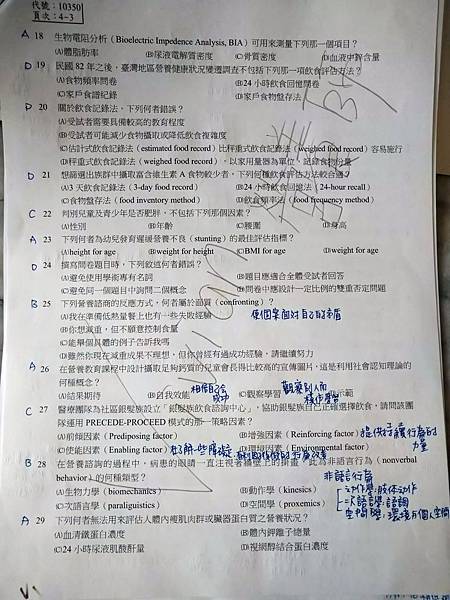 代號：10350
頁次：4-3
A 18 生物電阻分析（Bioelectric Impedence Analysis, BIA）可用來測量下列那一個項目？
(A)體脂肪率 (B)尿液電解質密度 (C)骨質密度 (D)血液中鋅含量
D 19 民國 82 年之後，臺灣地區營養健康狀況變遷調查不包括下列那一項飲食評估方法？
(A)食物頻率問卷 (B)24 小時飲食回憶問卷
(C)家戶食譜紀錄 (D)家戶食物盤存法
D 20 關於飲食記錄法，下列何者錯誤？
(A)受試者需要具備較高的教育程度
(B)受試者可能減少食物攝取或降低飲食複雜度
(C)估計式飲食記錄法（estimated food record）比秤重式飲食記錄法（weighed food record）容易施行
(D)秤重式飲食記錄法（weighed food record），以家用量器為單位，記錄食物份量
D 21 想篩選出族群中攝取富含維生素 A 食物較少者，下列何種飲食評估方法較合適？
(A)3 天飲食記錄法（3-day food record） (B)24 小時飲食回憶法（24-hour recall）
(C)食物盤存法（food inventory method） (D)飲食頻率法（food frequency method）
C 22 判別兒童及青少年是否肥胖，不包括下列那個因素？
(A)性別 (B)年齡 (C)腰圍 (D)身高
A 23 下列何者為幼兒發育遲緩營養不良（stunting）的最佳評估指標？
(A)height for age (B)weight for height (C)BMI for age (D)weight for age
D 24 撰寫問卷題目時，下列敘述何者錯誤？
(A)避免使用學術專有名詞 (B)題目應適合全體受試者回答
(C)避免同一個題目中詢問二個概念 (D)問卷中應設計一定比例的雙重否定問題
B 25 下列營養諮商的反應方式，何者屬於面質（confronting）？
(A)我在準備低熱量餐上也有一些失敗經驗 使個案面對自己的矛盾
(B)你想減重，但不願意控制食量
(C)能舉個具體的例子告訴我嗎
(D)雖然你現在減重成果不理想，但你曾經有過成功經驗，請繼續努力
A 26 在營養教育課程中設計攝取足夠鈣質的兒童會長得比較高的宣傳圖片，這是利用社會認知理論的
何種概念？ 相信自己會成功 觀察別人而
(A)結果期待 (B)自我效能 (C)觀察學習
C 27 醫療團隊為社區銀髮族設立「銀髮族飲食諮詢中心」，協助銀髮族自己正確選擇飲食，請問該團
隊運用 PRECEDE-PROCEED 模式的那一策略因素？
(A)前傾因素（Prediposing factor） (B)增強因素（Reinforcing factor）
(C)使能因素（Enabling factor） (D)環境因素（Environmental factor）
B 28 在營養諮詢的過程中，病患的眼睛一直注視著牆壁上的掛畫，此為非語言行為（nonverbal
behavior）的何種類型？ 非語言行為
(A)生物力學（biomechanics） (B)動作學（kinesics）
(C)次語言學（paraliguistics） (D)空間學（proxemics）
A 29 下列何者無法用來評估人體內瘦肌肉群或臟器蛋白質之營養狀況？
(A)血清鐵蛋白濃度 (B)體內鉀離子總量
(C)24 小時尿液肌酸酐量 (D)視網醇結合蛋白濃度